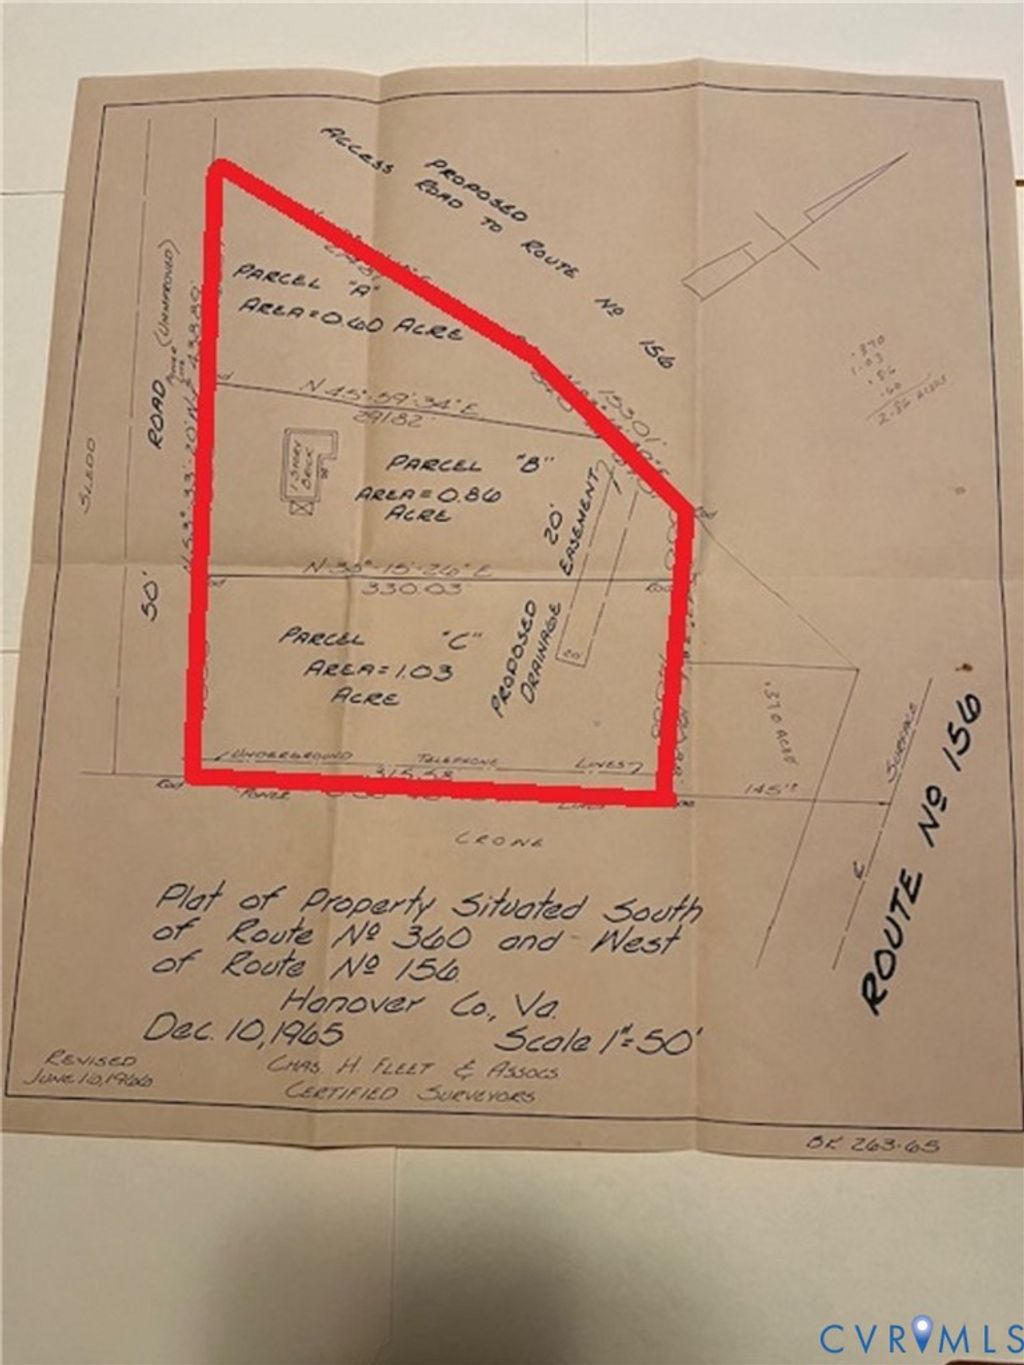 ACCESS PROPOSED
ROAD TO ROUTE Nº 156
PARCEL "A"
AREA=0.60 ACRE
ROAD (UNIMPROVED)
N 45°-59'-34" E
291.82
SLEDD
1 STORY
BRICK
PARCEL "B"
AREA=0.86
ACRE
20'
EASEMENT
PROPOSED
DRAINAGE
20'
.370
1.03
.86
.60
2.86 ACRES
153.01'
Rod
50'
330.03
Rod
PARCEL "C"
AREA=1.03
ACRE
.370 ACRE
UNDERGROUND TELEPHONE LINES
315.58
Rod
POWER LINES
145'±
CRONE
ROUTE Nº 156
Plat of Property Situated South
of Route Nº 360 and West
of Route Nº 156.
Hanover Co., Va.
Dec. 10, 1965 Scale 1"=50'
REVISED
JUNE 10, 1966
CHAS. H. FLEET & ASSOCS.
CERTIFIED SURVEYORS
BK 263-65
CVRMLS